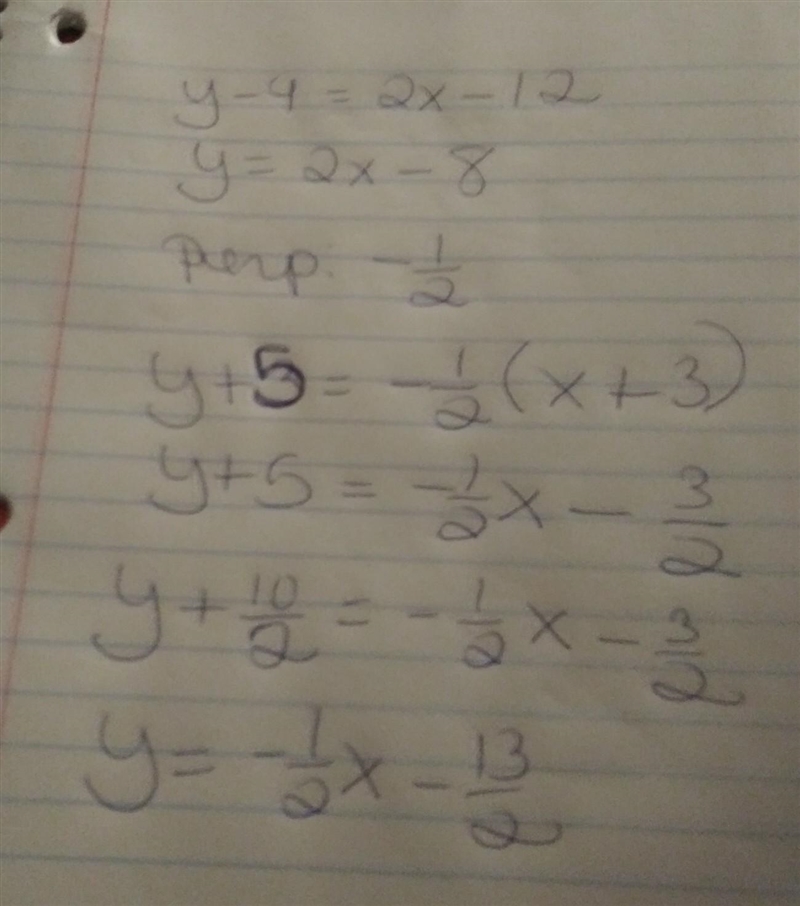 y - 4 = 2x - 12
y = 2x - 8
Perp. - 1/2
y + 5 = - 1/2 (x + 3)
y + 5 = - 1/2 x - 3/2
y + 10/2 = - 1/2 x - 3/2
y = - 1/2 x - 13/2